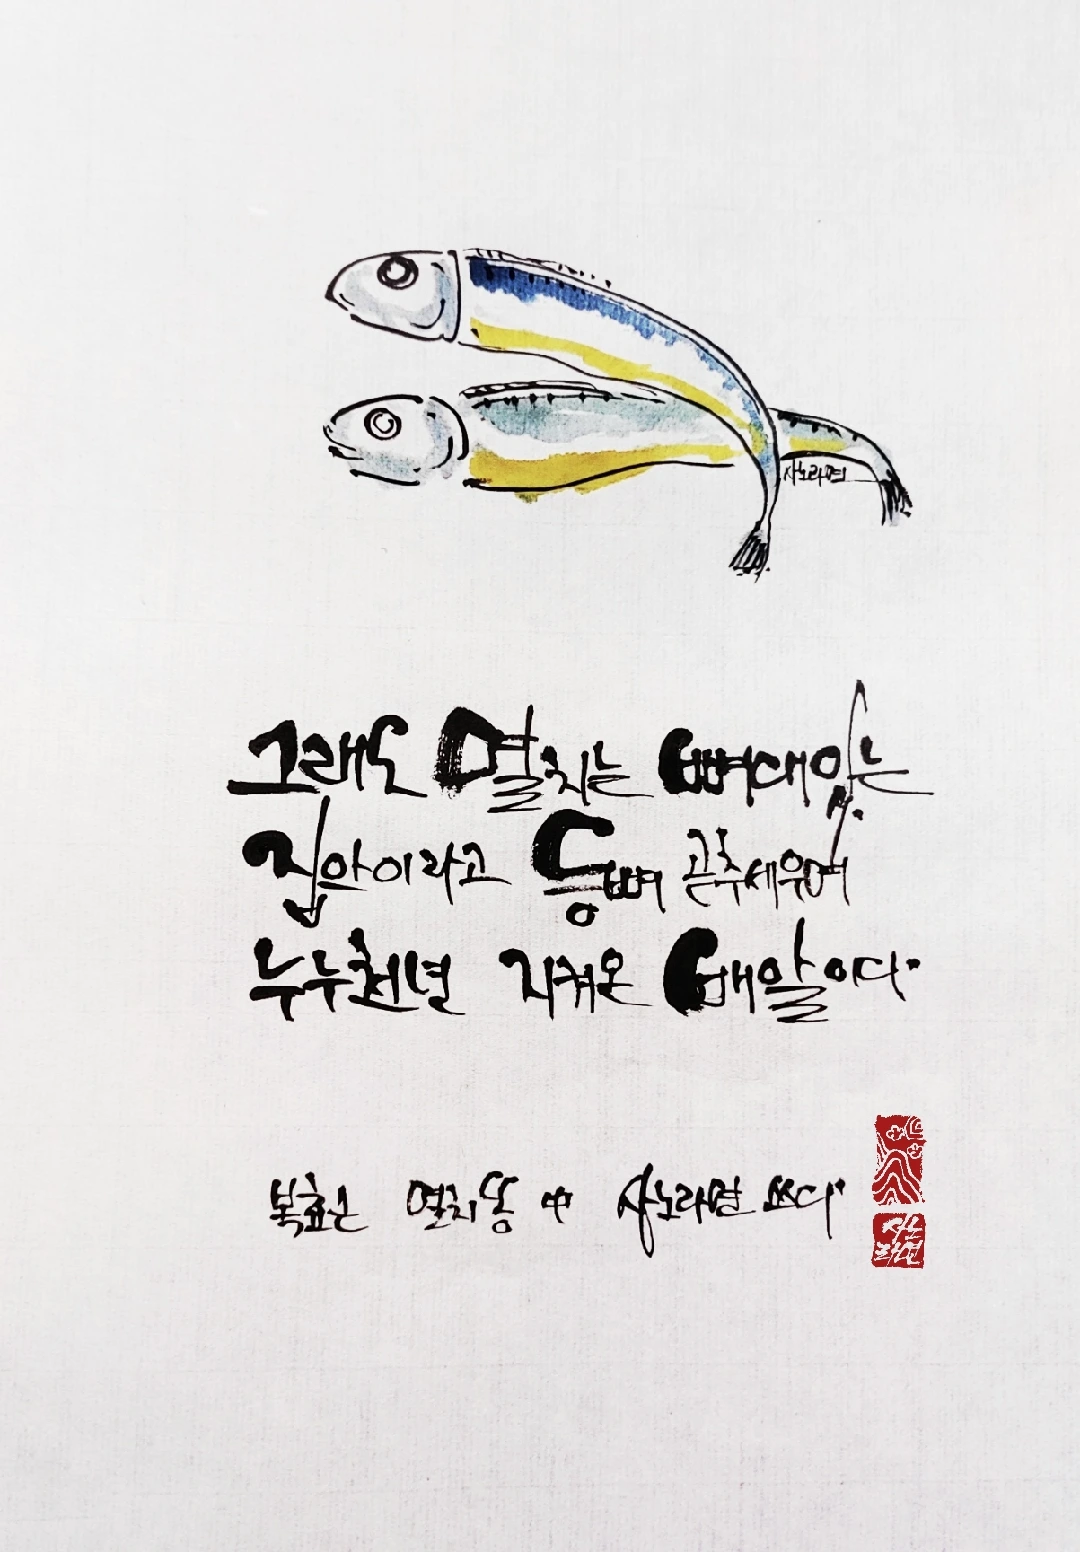 사노라면
그래도 멸치는 뼈대있는
집안이라고 등뼈 곧추세우며
누누천년 지켜온 배알이다
복효근 멸치똥 中 사노라면 쓰다
사노
라면